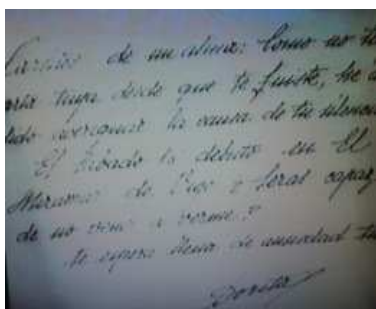 de mi alma: Como no te
tuya desde que te fuiste, he de
averiguar la causa de tu silencio
El Sábado la debuto en El
Miramar de Vigo ¿Serás capaz
de no venir a verme?
te espera llena de ansiedad tu
Dorita